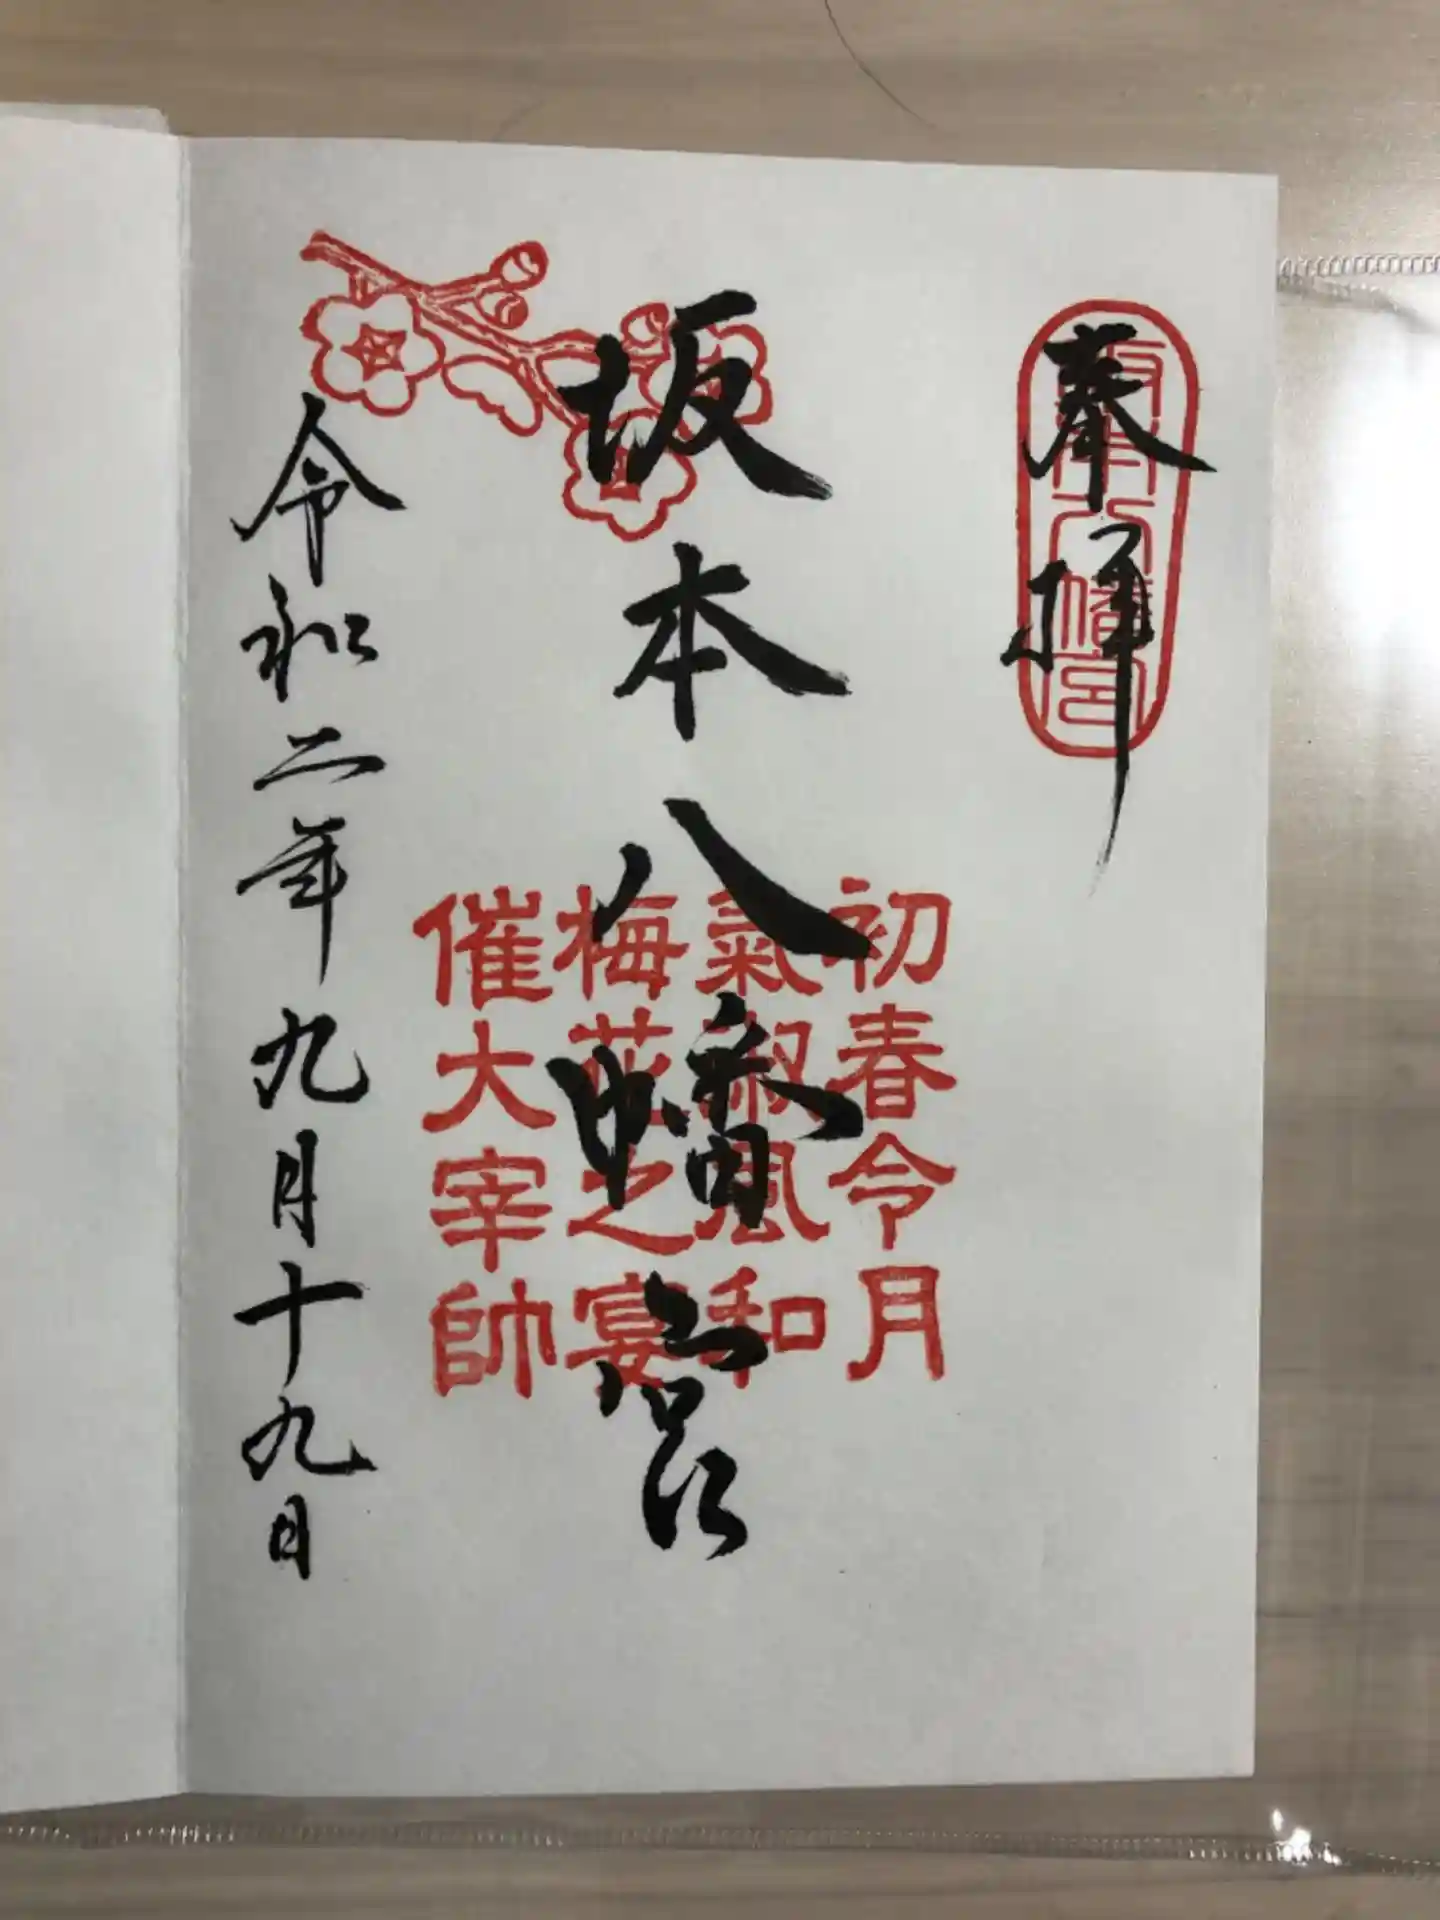 奉拝
坂本八幡宮
坂本八幡宮
初春令月
氣淑風和
梅花之宴
催大宰帥
令和二年九月十九日